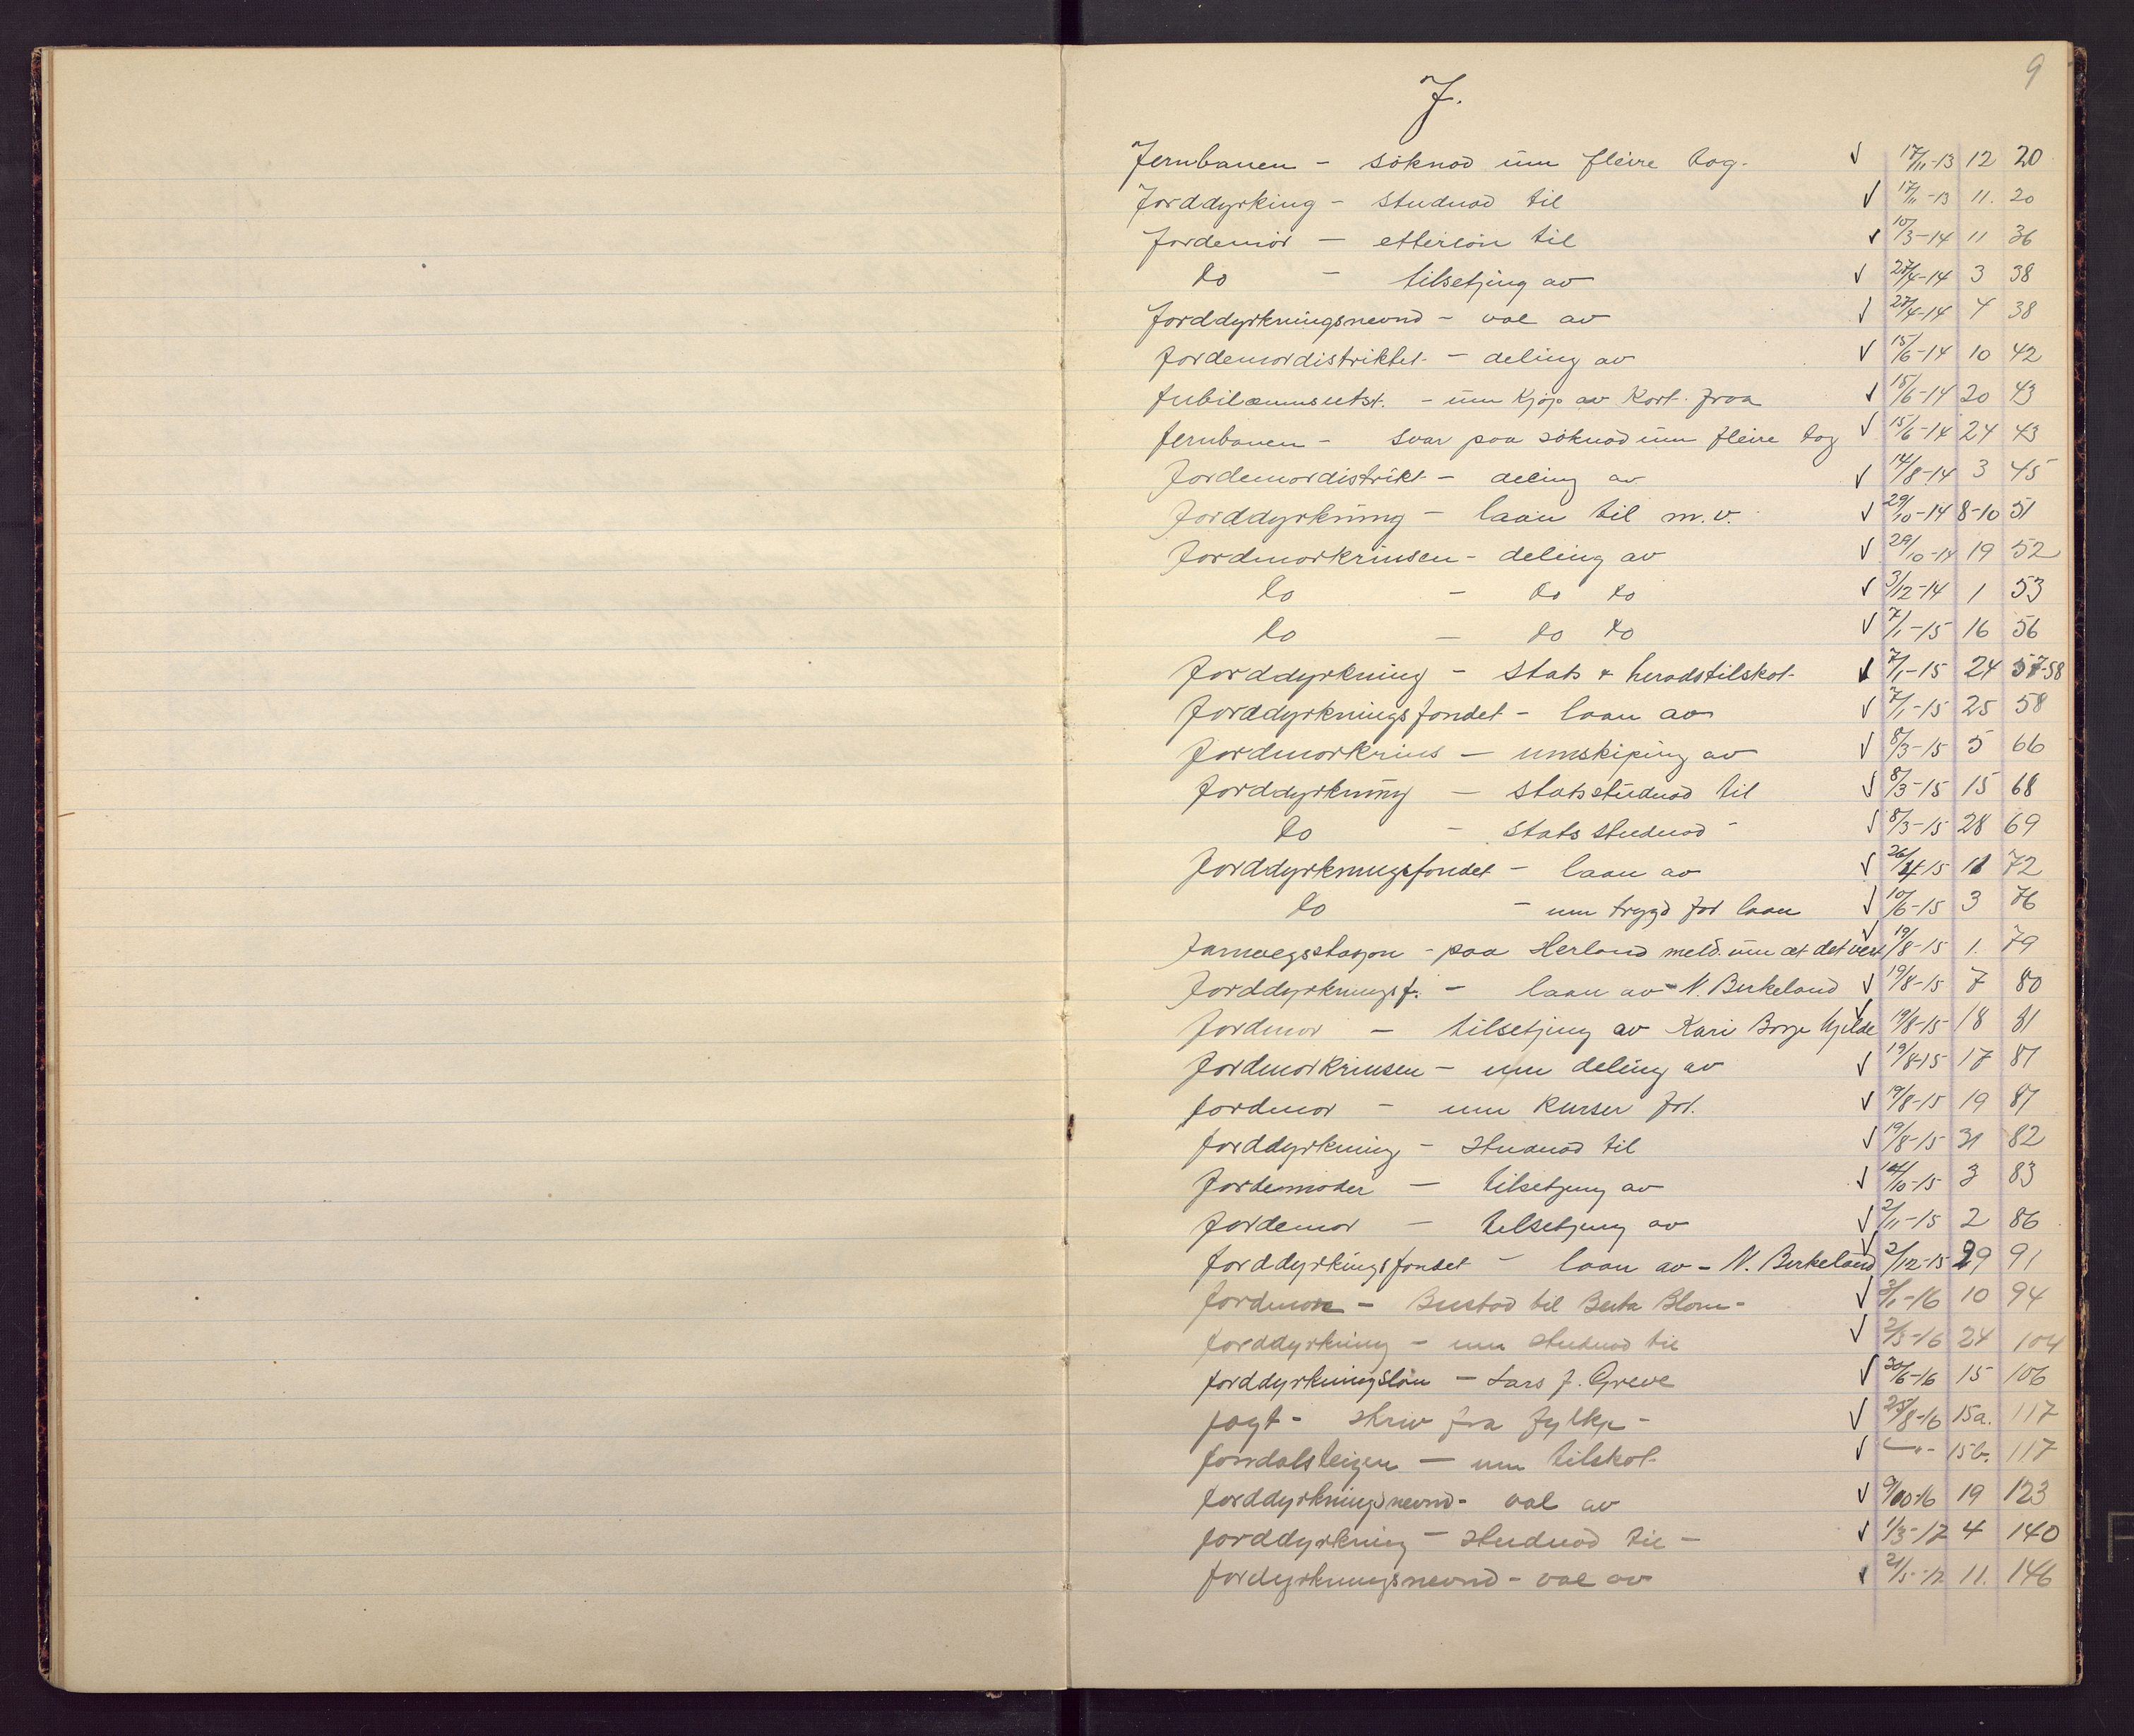 9
J.
Jernbanen - söknad um fleire tog - √ 17/11-13 12 20
Jorddyrking - studnad til √ 17/11-13 11. 20
Jordemor - etterlön til √ 10/3-14 11 36
do - tilsetjing av √ 27/4-14 3 38
Jorddyrkningsnevnd - val av √ 27/4-14 4 38
Jordemordistriktet - deling av √ 15/6-14 10 42
Jubilæumsutst. - um Kjöp av Kort fraa √ 15/6-14 20 43
Jernbanen - Svar paa söknad um fleire tog √ 15/6-14 24 43
Jordemordistrikt - deling av √ 14/8-14 3 45
Jorddyrkning - laan til m.v. √ 29/10-14 8-10 51
Jordmorkrinsen - deling av √ 29/10-14 19 52
do - do do √ 3/12-14 1 53
do - do do √ 7/1-15 16 56
Jorddyrkning - Stats & heradstilskot √ 7/1-15 24 57-58
Jorddyrkningsfondet - laan av √ 7/1-15 25 58
Jordmorkrins - umskiping av √ 8/3-15 5 66
Jorddyrkning - statsstudnad til √ 8/3-15 15 68
do - Statsstudnad - √ 8/3-15 28 69
Jorddyrkningsfondet - laan av √ 26/4-15 11 72
do - um trygd for laan √ 10/6-15 3 76
Jarnvegsstasjon - paa Herland meld. um at det vert √ 19/8-15 1. 79
Jorddyrkningsf. - laan av - N. Birkeland √ 19/8-15 7 80
Jordmor - tilsetjing av Kari Borge Gjelde √ 19/8-15 18 81
Jordmorkrinsen - um deling av √ 19/8-15 17 81
Jordmor - um Kurser for. √ 19/8-15 19 81
Jorddyrkning - Studnad til √ 19/8-15 31 82
Jordemoder - tilsetjing av √ 14/10-15 3 83
Jordemor - tilsetjing av √ 2/11-15 2 86
Jorddyrkingsfondet - laan av - N. Birkeland √ 2/12-15 29 91
Jordmor - Bustad til Berta Blom - √ 3/1-16 10 94
Jorddyrkning - um studnad til √ 2/3-16 24 104
Jorddyrkningslån - Lars J. Greve √ 30/6-16 15 106
Jagt - Skriv fra Fylke - √ 25/8-16 15a. 117
Jorndalsteigen - um tilskot √ -"- 15b. 117
Jorddyrkningsnevnd - val av √ 9/10-16 19 123
Jorddyrkning - Studnad til - √ 1/3-17 4 140
Jordyrkningsnevnd - val av √ 21/5-17 11. 146